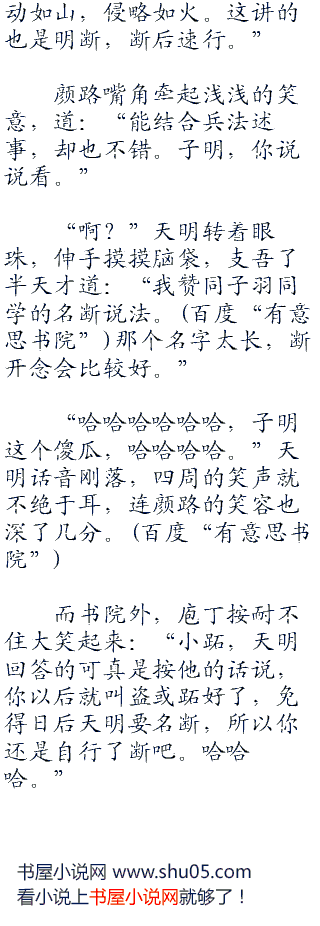 动如山，侵略如火。这讲的
也是明断，断后速行。”
颜路嘴角牵起浅浅的笑
意，道：“能结合兵法述
事，却也不错。子明，你说
说看。”
“啊？”天明转着眼
珠，伸手摸摸脑袋，支吾了
半天才道：“我赞同子羽同
学的名断说法。(百度“有意
思书院”)那个名字太长，断
开念会比较好。”
“哈哈哈哈哈哈，子明
这个傻瓜，哈哈哈哈。”天
明话音刚落，四周的笑声就
不绝于耳，连颜路的笑容也
深了几分。(百度“有意思书
院”)
而书院外，庖丁按耐不
住大笑起来：“小跖，天明
回答的可真是按他的话说，
你以后就叫盗或跖好了，免
得日后天明要名断，所以你
还是自行了断吧。哈哈
哈。”
书屋小说网 www.shu05.com
看小说上书屋小说网就够了！